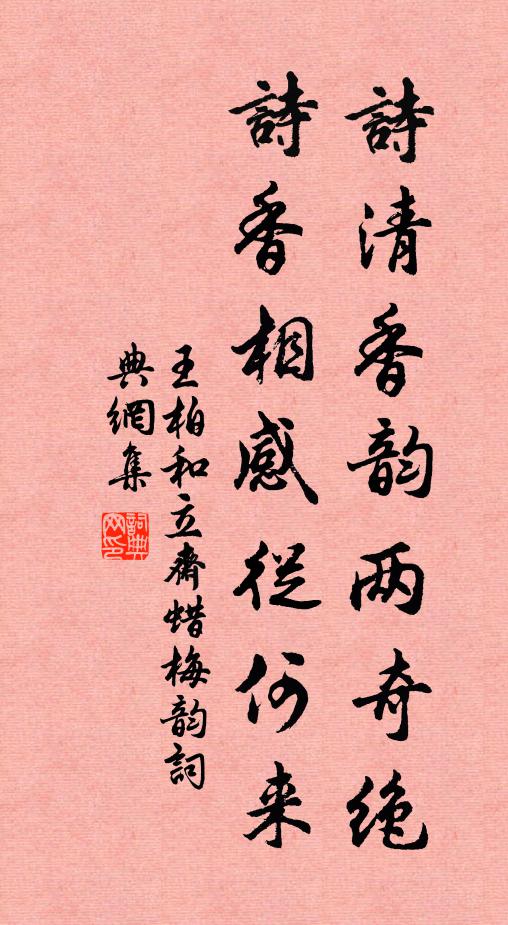 詩清香韵两奇绝
詩香相感從何来
王柏和立齋蜡梅韵詞
典網集
詞典网印